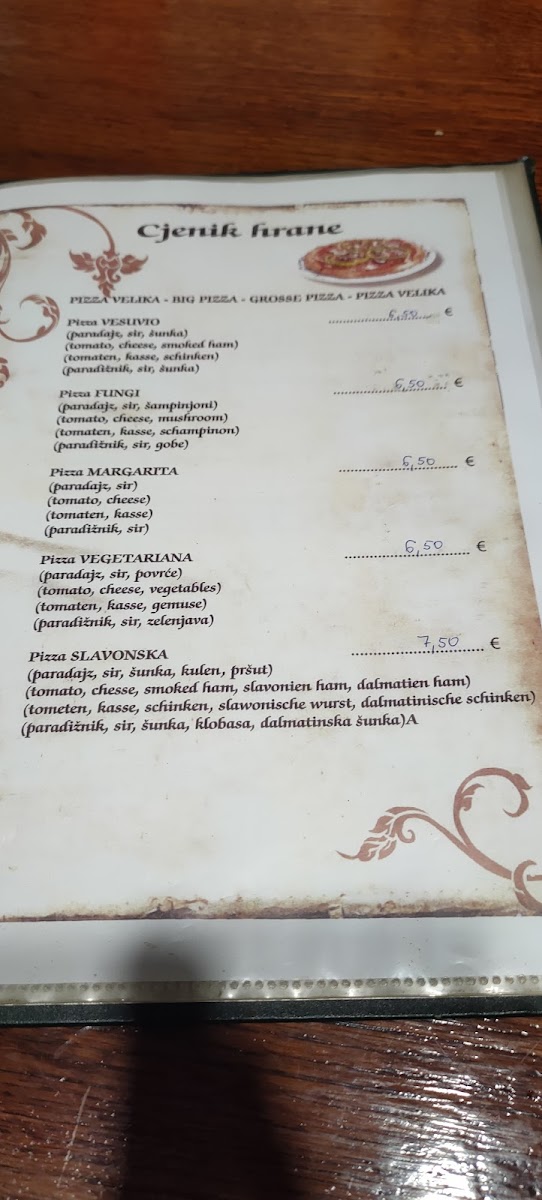 Cjenik hrane
PIZZA VELIKA - BIG PIZZA - GROSSE PIZZA - PIZZA VELIKA
Pizza VESUVIO ........ 6,50 €
(paradajz, sir, šunka)
(tomato, cheese, smoked ham)
(tomaten, kasse, schinken)
(paradižnik, sir, šunka)
Pizza FUNGI ........ 6,50 €
(paradajz, sir, šampinjoni)
(tomato, cheese, mushroom)
(tomaten, kasse, schampinon)
(paradižnik, sir, gobe)
Pizza MARGARITA ........ 6,50 €
(paradajz, sir)
(tomato, cheese)
(tomaten, kasse)
(paradižnik, sir)
Pizza VEGETARIANA ........ 6,50 €
(paradajz, sir, povrće)
(tomato, cheese, vegetables)
(tomaten, kasse, gemuse)
(paradižnik, sir, zelenjava)
Pizza SLAVONSKA ........ 7,50 €
(paradajz, sir, šunka, kulen, pršut)
(tomato, chesse, smoked ham, slavonien ham, dalmatien ham)
(tometen, kasse, schinken, slawonische wurst, dalmatinische schinken)
(paradižnik, sir, šunka, klobasa, dalmatinska šunka)A